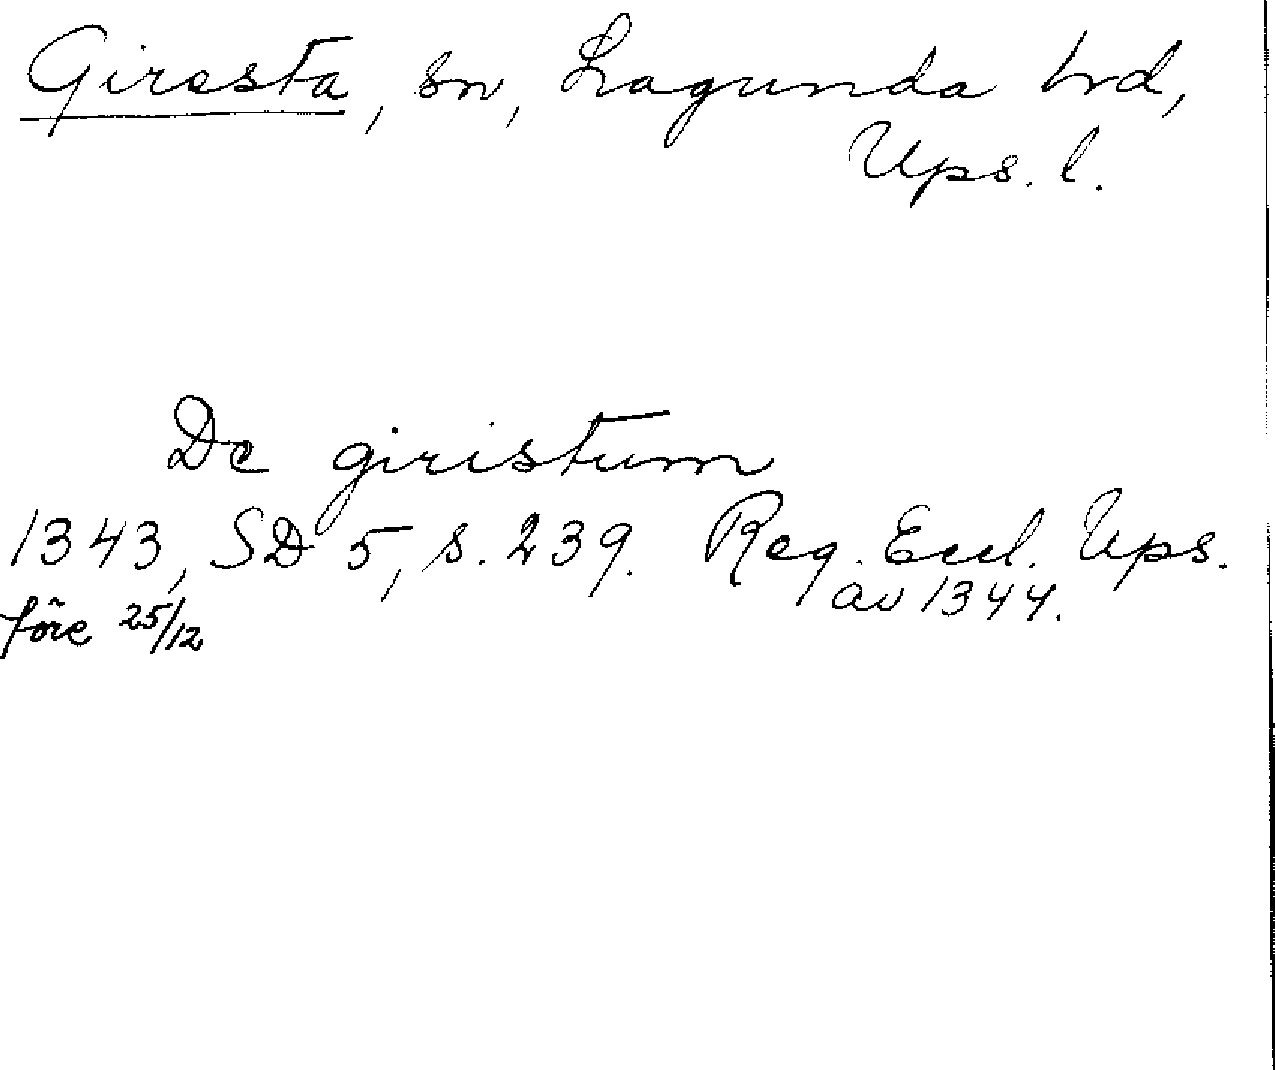 Giresta, sn, Lagunda hrd,
Ups. l.
De giristum
1343, SD 5, s. 239. Reg. Eccl. Ups.
före 25/12 av 1344.